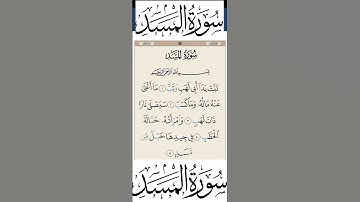 سُورَةُ المَسَدِ
سُورَةُ المَسَدِ
بِسْمِ اللَّهِ الرَّحْمَٰنِ الرَّحِيمِ
تَبَّتْ يَدَا أَبِي لَهَبٍ وَتَبَّ ١ مَا أَغْنَىٰ
عَنْهُ مَالُهُ وَمَا كَسَبَ ٢ سَيَصْلَىٰ نَارًا
ذَاتَ لَهَبٍ ٣ وَامْرَأَتُهُ حَمَّالَةَ
الْحَطَبِ ٤ فِي جِيدِهَا حَبْلٌ مِّن
مَّسَدٍ ٥
سُورَةُ المَسَدِ